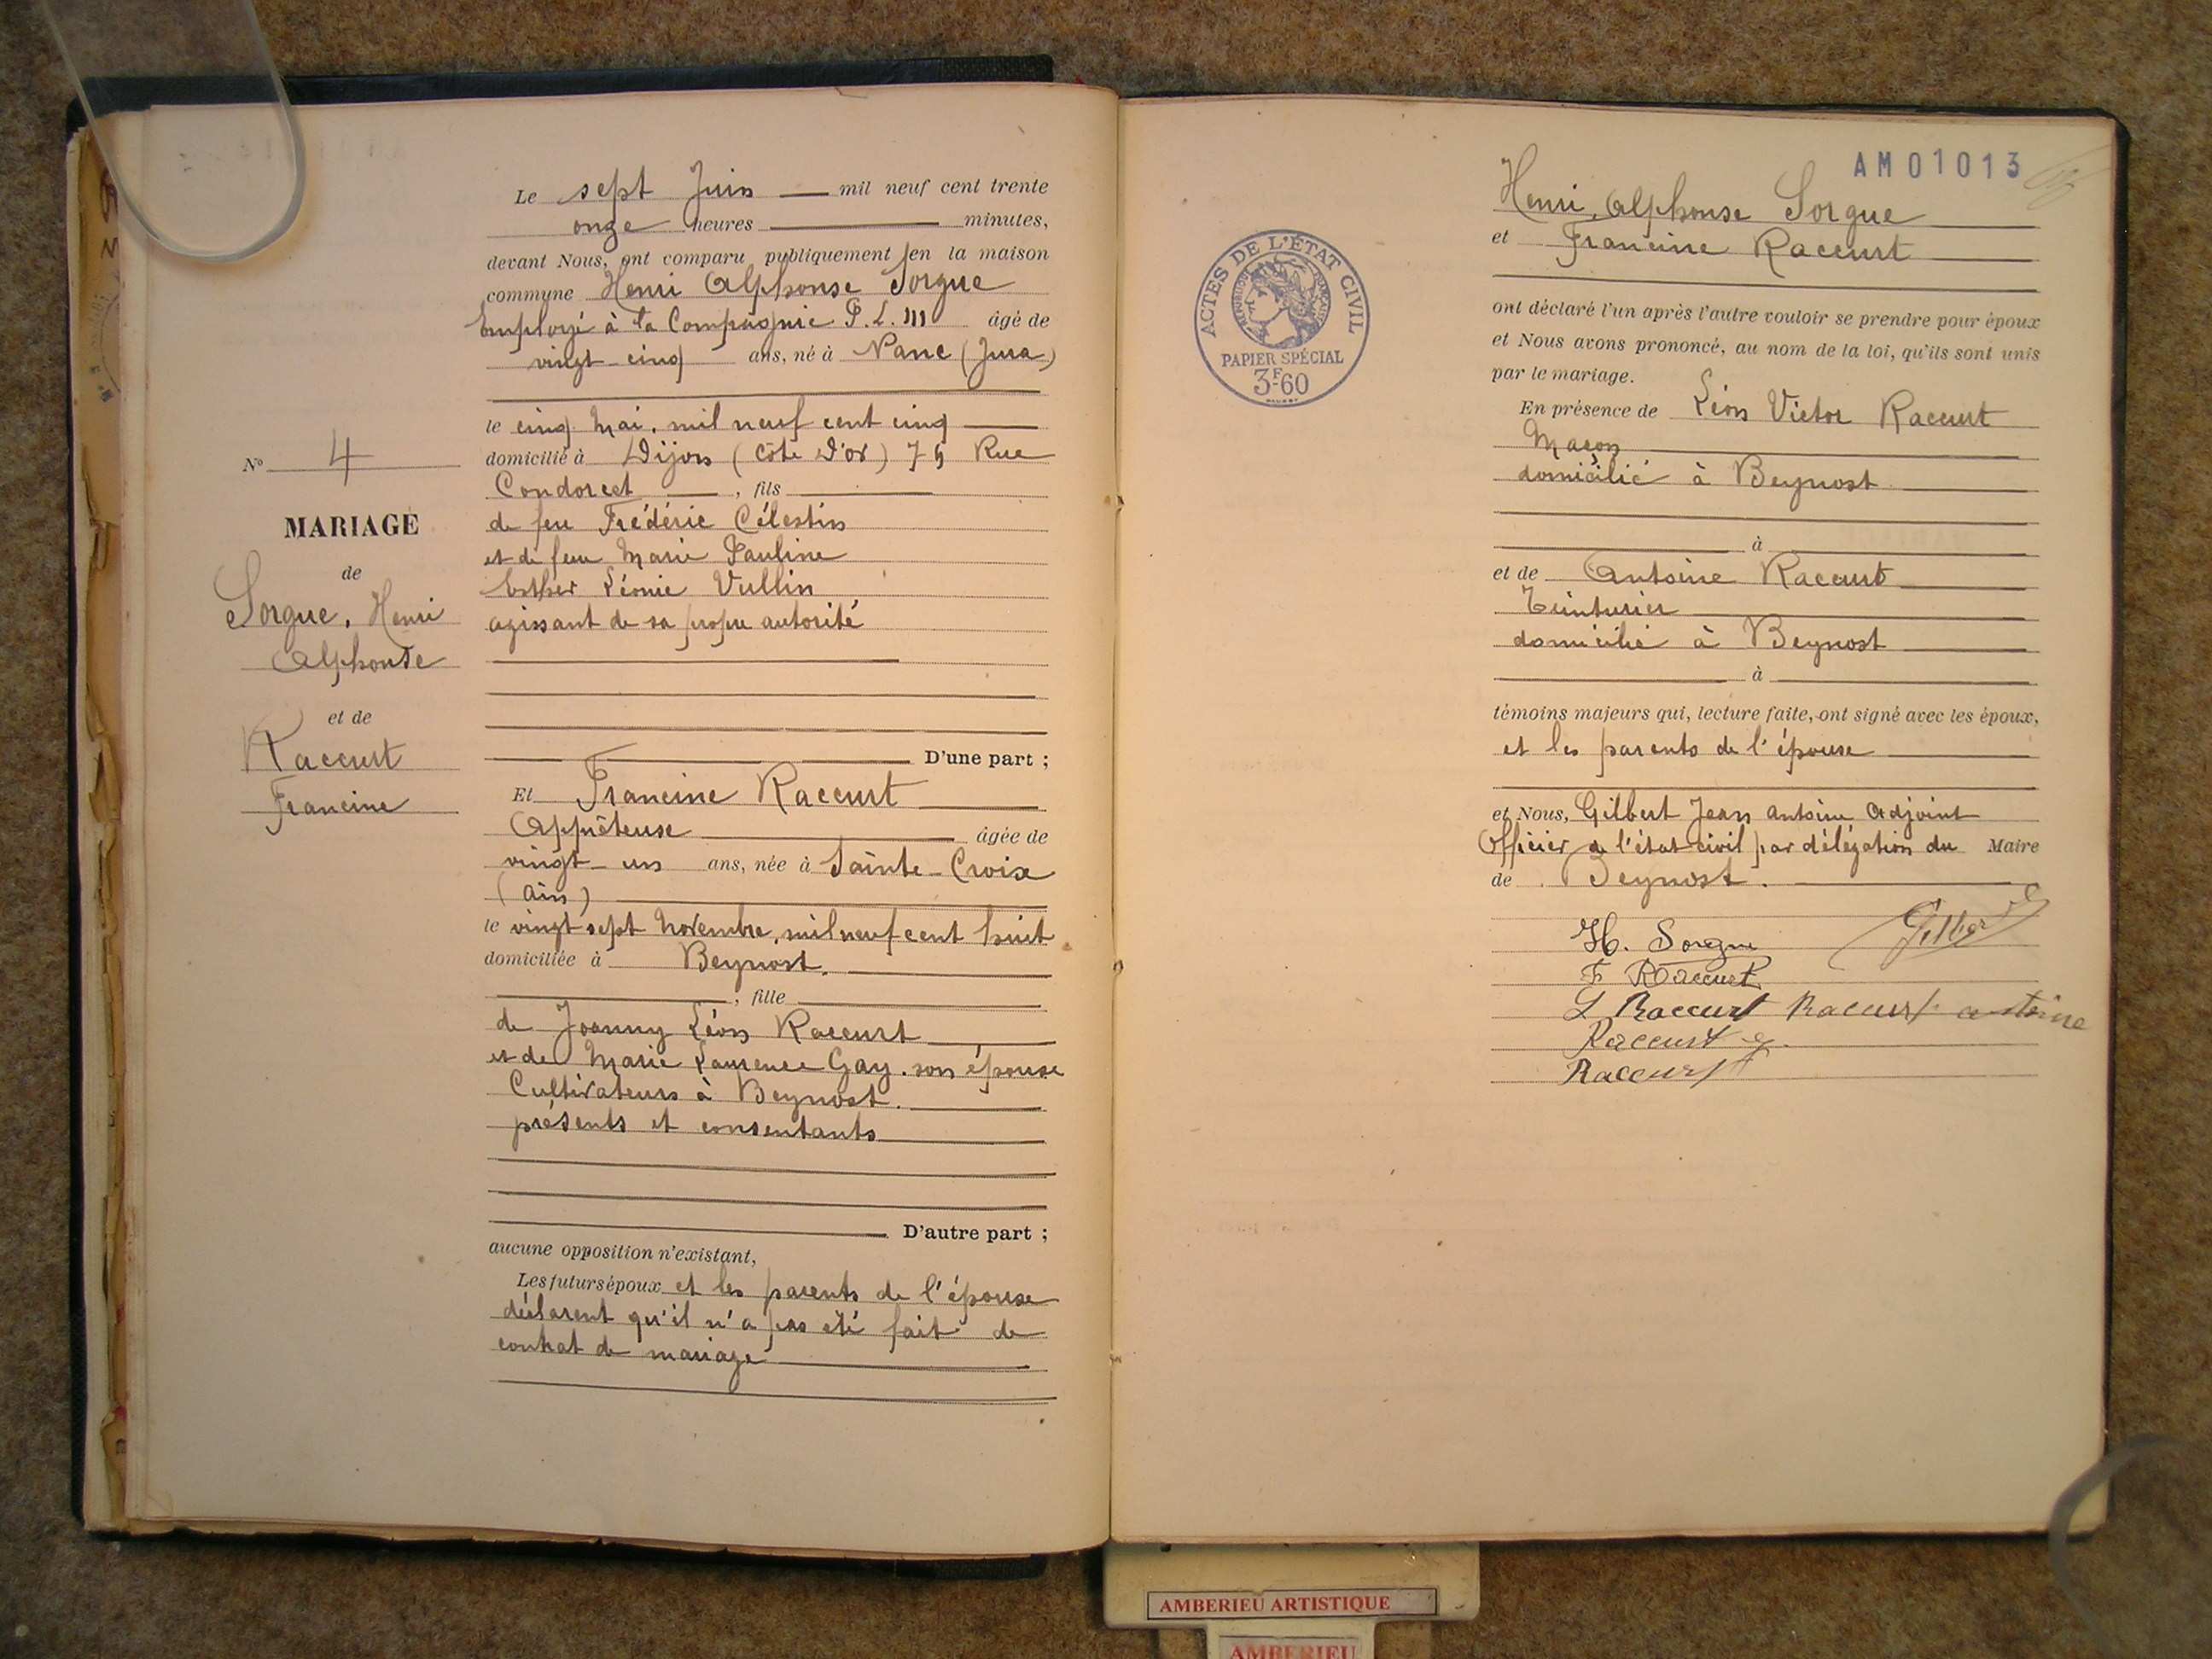 Le sept Juin mil neuf cent trente
onze heures minutes,
devant Nous, ont comparu publiquement en la maison
commune Henri Alphonse Sorgue
Employé à la Compagnie P. L. M âgé de
vingt-cinq ans, né à Nanc (Jura)
le cinq Mai, mil neuf cent cinq
domicilié à Dijon (Côte d'or) Rue
Condorcet, fils
de feu Frédéric Célestin
et de feue Marie Pauline
Esther Léonie Vullin
agissant de sa propre autorité
N° 4
MARIAGE
de
Sorgue, Henri
Alphonse
et de
Raccurt
Francine
D'une part ;
Et Francine Raccurt
Apprêteuse âgée de
vingt-un ans, née à Sainte-Croix
(Ain)
le vingt sept Novembre, mil neuf cent huit
domiciliée à Beynost.
, fille
de Joanny Léon Raccurt
et de Marie Laurence Gay. son épouse
Cultivateurs à Beynost.
présents et consentants
D'autre part ;
aucune opposition n'existant,
Les futurs époux et les parents de l'épouse
déclarent qu'il n'a pas été fait de
contrat de mariage
AM01013
Henri, Alphonse Sorgue
et Francine Raccurt
ont déclaré l'un après l'autre vouloir se prendre pour époux
et Nous avons prononcé, au nom de la loi, qu'ils sont unis
par le mariage.
En présence de Léon Victor Raccurt
Maçon
domicilié à Beynost
à
et de Antoine Raccurt
Teinturier
domicilié à Beynost
à
témoins majeurs qui, lecture faite, ont signé avec les époux,
et les parents de l'épouse
et Nous, Gilbert Jean Antoine Adjoint
Officier de l'état-civil par délégation du Maire
de Beynost.
H. Sorgue Gilbert
F Raccurt
L Raccurt Raccurt antoine
Raccurt g
Raccurt
ACTES DE L'ÉTAT CIVIL
RÉPUBLIQUE FRANÇAISE
PAPIER SPÉCIAL
3F60
AMBERIEU ARTISTIQUE
AMBERIEU